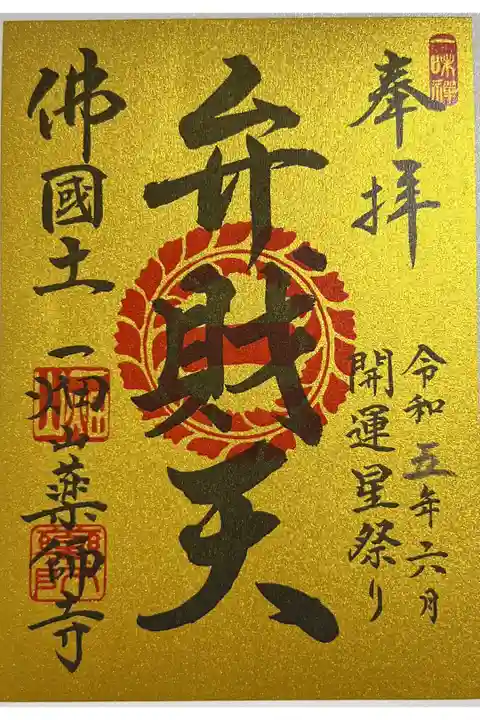 一味禪
奉拝
令和五年六月
開運星祭り
弁財天
佛國土
一畑山薬師寺